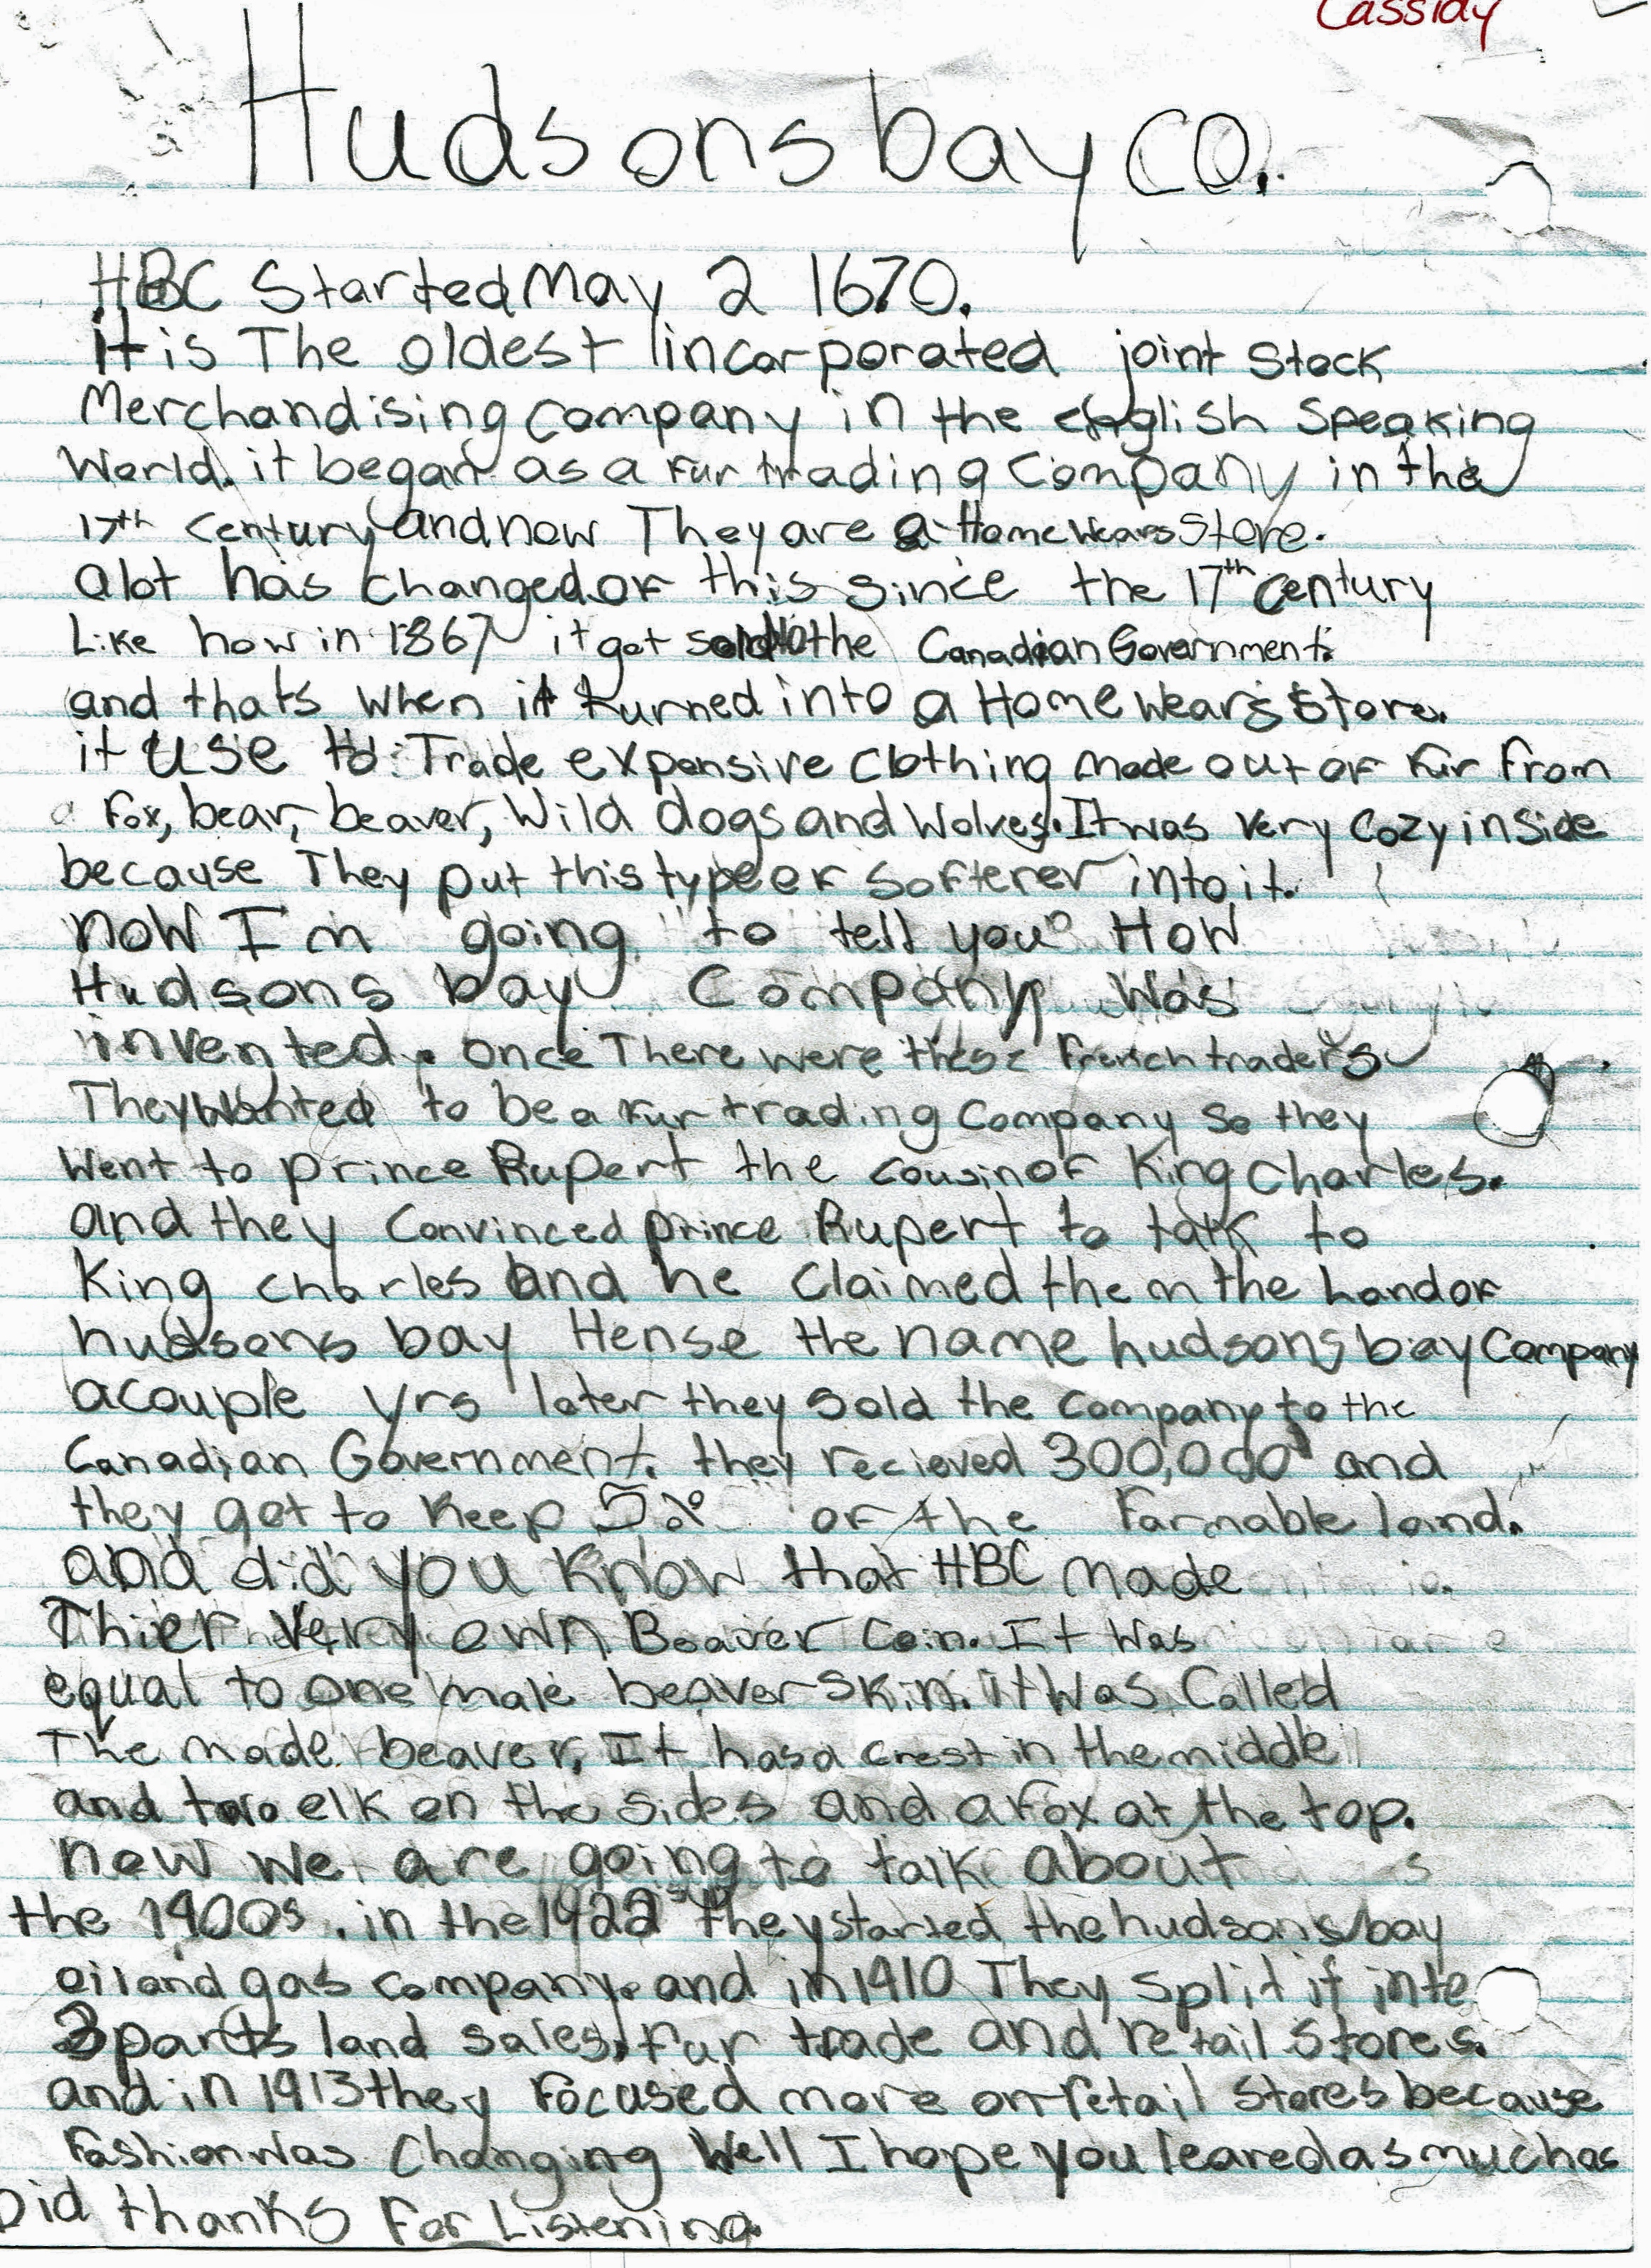 Cassidy
Hudsons bay co.
HBC Started May 2 1670.
it is The oldest incorporated joint Stock
Merchandising company in the english speaking
World. it began as a fur trading company in the
17th century and now They are a Home Wears Store.
alot has changed of this since the 17th century
Like how in 1867 it got sold to the Canadian Government.
and thats when it turned into a Home wears store.
it use to Trade expensive clothing made out of fur from
a fox, bear, beaver, Wild dogs and Wolves. It was very cozy inside
because They put this type of softerer into it.
now I'm going to tell you How
Hudsons bay Company was
invented. once There were these french traders
They wanted to be a fur trading company so they
went to prince Rupert the cousin of King Charles.
and they convinced prince Rupert to talk to
King charles and he claimed them the land of
hudsons bay Hense the name hudsons bay Company
acouple yrs later they sold the company to the
Canadian Government. they recieved 300,000 and
they got to keep 5% of the Farmable land.
and did you know that HBC made
Thier very own Beaver Coin. It was
equal to one male beaver skin. it was Called
The made beaver. It has a crest in the middle
and two elk on the sides and a fox at the top.
now we are going to talk about
the 1900s. in the 1922 they started the hudsons bay
oil and gas company. and in 1910 They split it into
3 parts land sales, fur trade and retail stores.
and in 1913 they focused more on retail stores because
fashion was changing Well I hope you leared as much as
Did thanks for Listening.